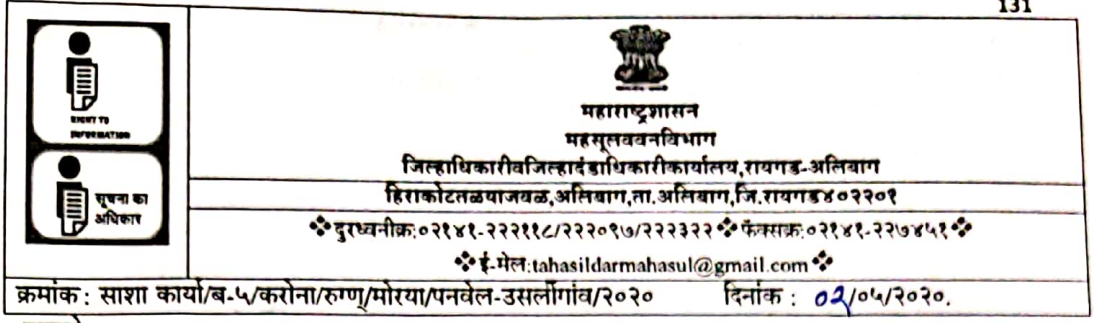 131
RIGHT TO
INFORMATION
सूचना का
अधिकार
महाराष्ट्रशासन
महसूलववनविभाग
जिल्हाधिकारीवजिल्हादंडाधिकारीकार्यालय,रायगड-अलिबाग
हिराकोटतळयाजवळ,अलिबाग,ता.अलिबाग,जि.रायगड४०२२०१
❖दुरध्वनीक्र:०२१४१-२२२११८/२२२०९७/२२२३२२❖फॅक्सक्र:०२१४१-२२७४५१❖
❖ई-मेल:tahasildarmahasul@gmail.com❖
क्रमांक : साशा कार्या/ब-५/करोना/रुग्ण/मोरया/पनवेल-उसर्लीगांव/२०२० दिनांक : ०२/०५/२०२०.